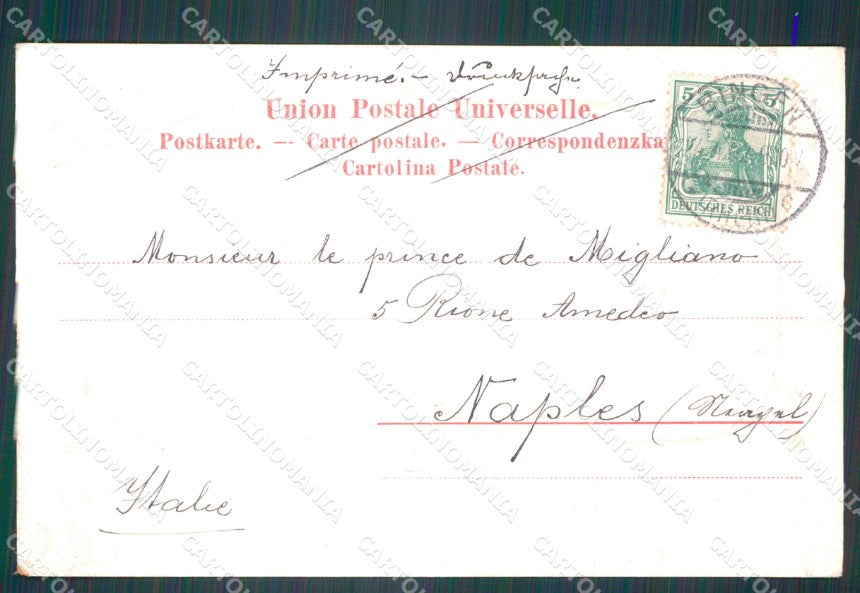 Imprimé. – Drucksache.
Union Postale Universelle.
Postkarte. — Carte postale. — Correspondenzka
Cartolina Postale.
5 5
DEUTSCHES REICH
BINGEN
Monsieur le prince de Migliano
5 Rione Amedeo
Naples
Italie
CARTOLINOMANIA